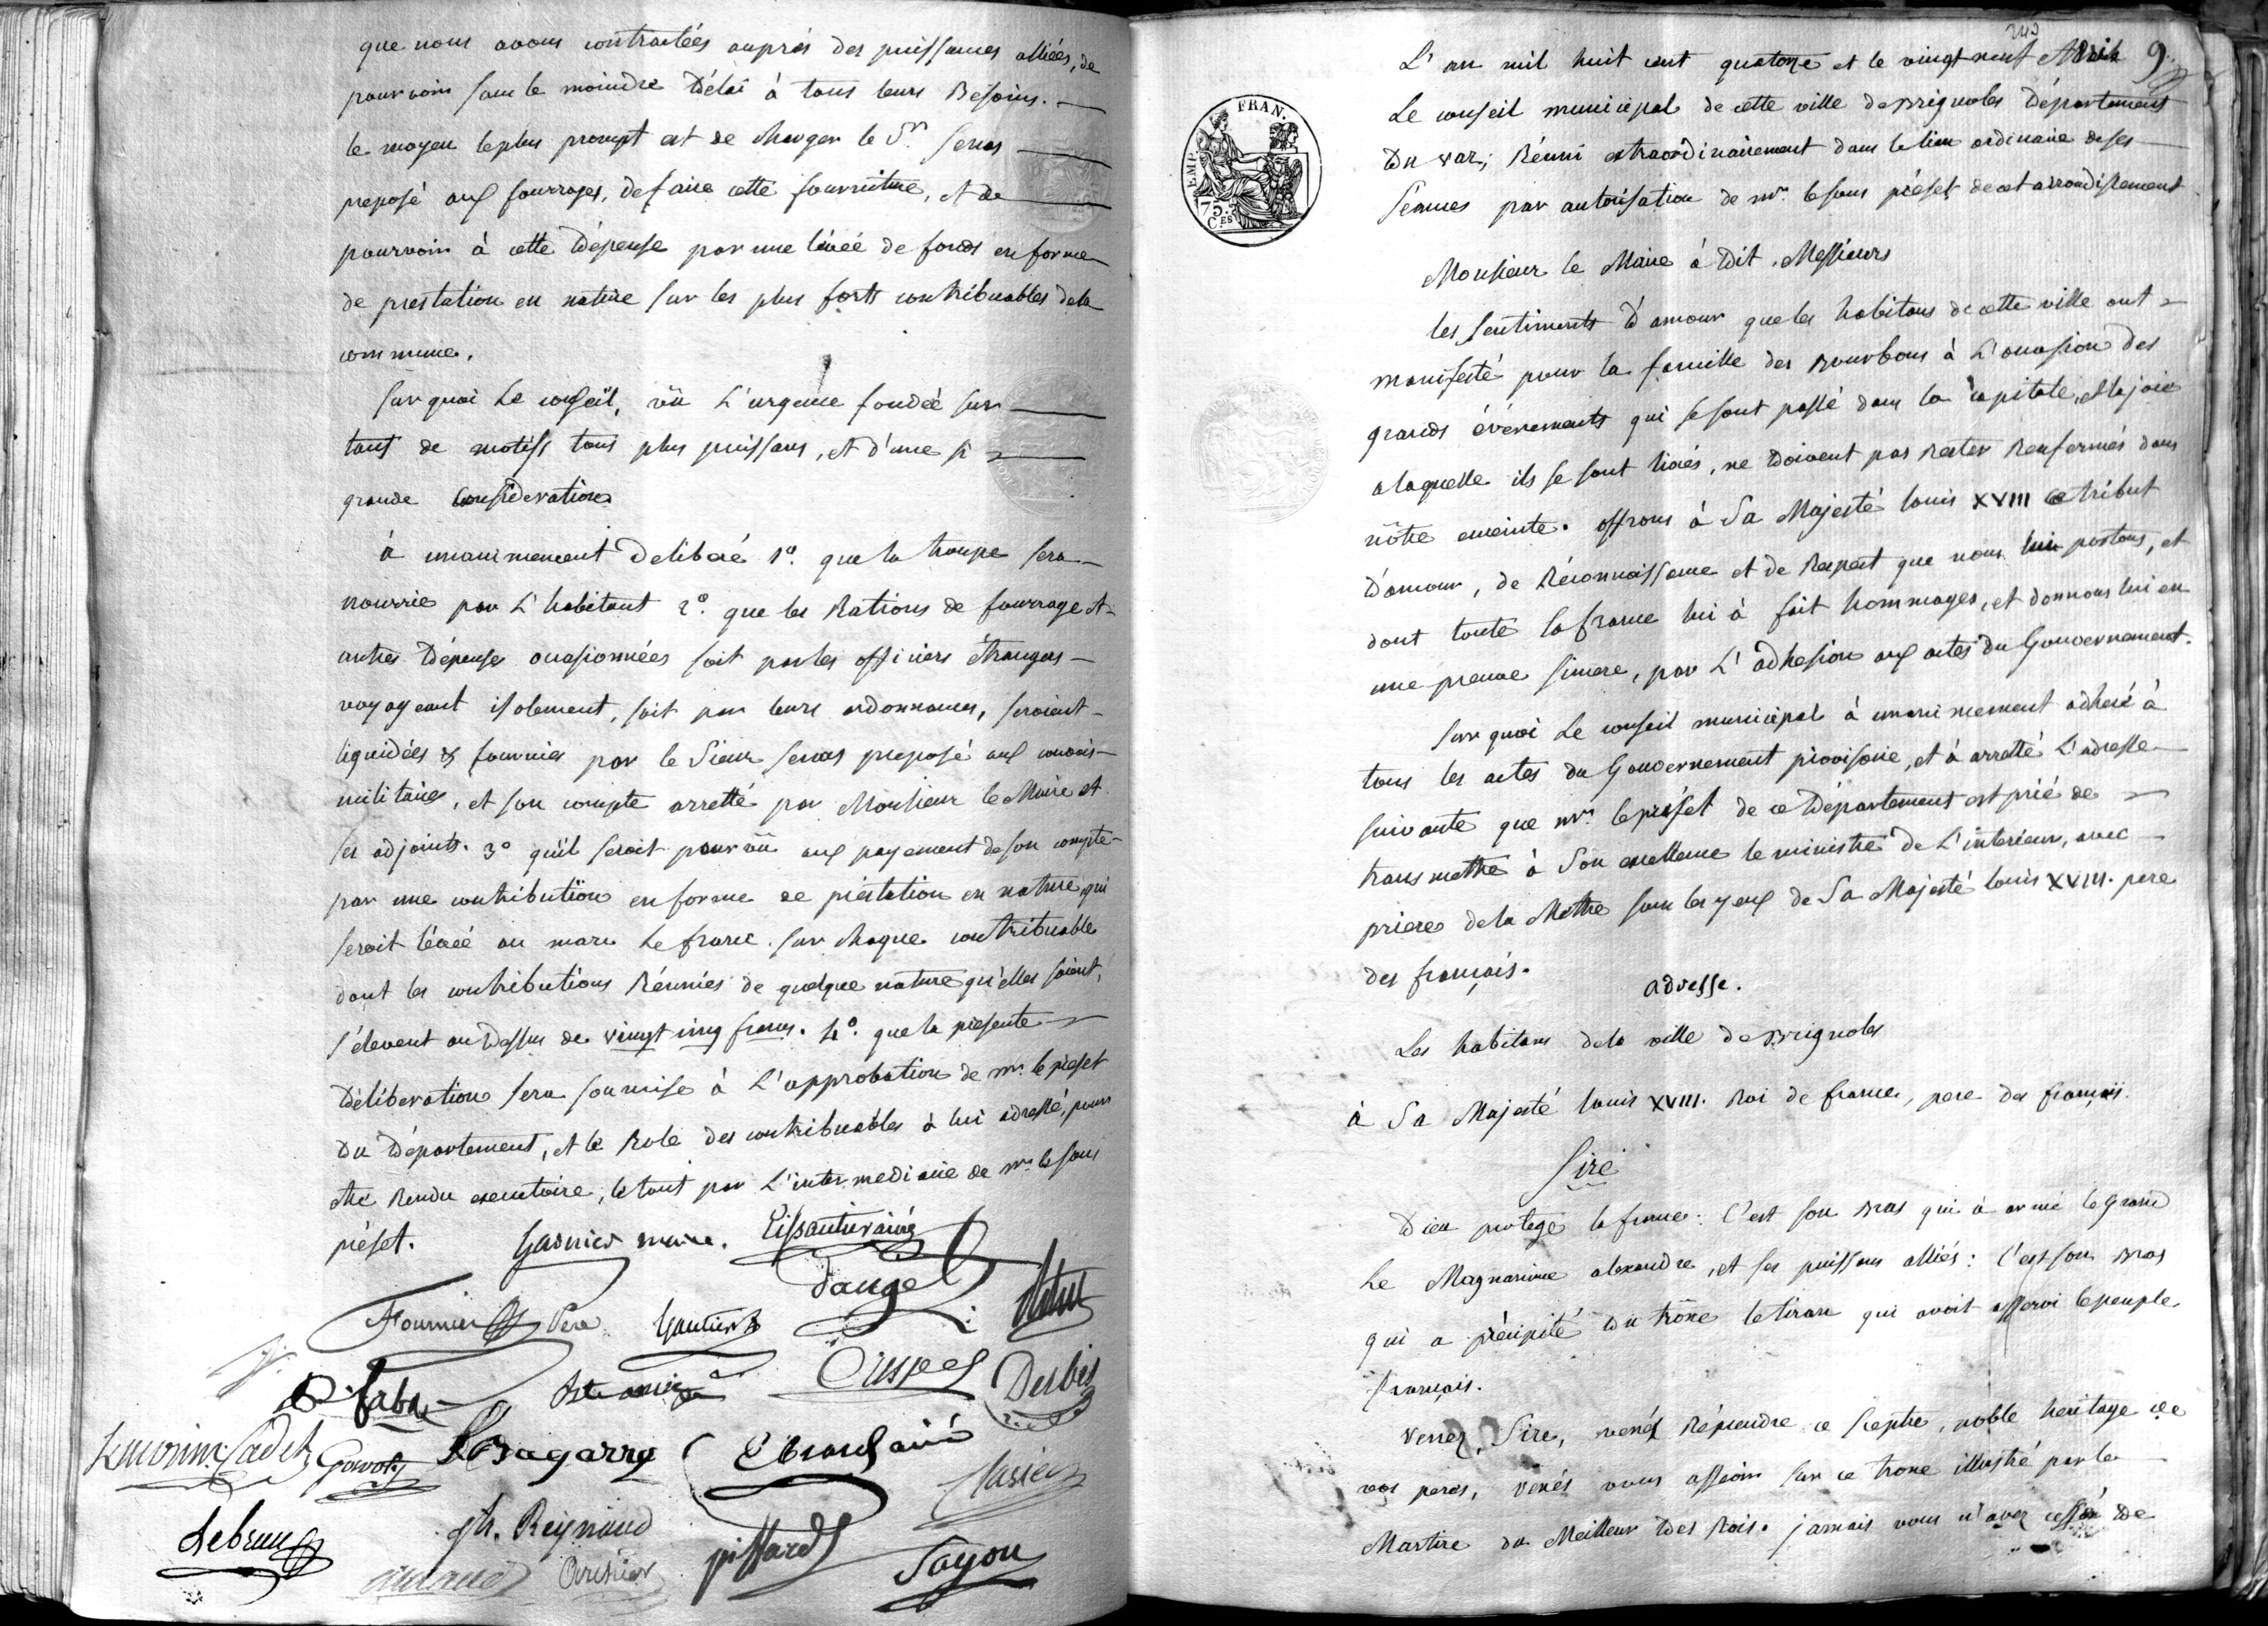 que nous avons contractées auprès des puissances alliées, de
pourvoir sans le moindre Délai à tous leurs Besoins.
le moyen leplus prompt est de charger le Sr. Senes
preposé aux fourrages, defaire cette fourniture, et de
pourvoir à cette Dépense par une levée de fonds en forme
de prestation en nature sur les plus forts contribuables dela
commune.
Sur quoi Le conseil, vû L'urgence fondée sur
tant de motifs tous plus puissans, et d'une si
grande Consideration
à unanimement Deliberé 1°. que la troupe sera
nourrie par L'habitant 2°. que les Rations de fourrage et
autres Dépenses occasionnées soit par les officiers étrangers
voyageant isolement, soit par leurs ordonnances, seroient
liquidées & fournies par le Sieur Senes preposé aux convois
militaires, et son compte arretté par Monsieur le Maire et
ses adjoints. 3° qu'il seroit pourvû aux payement deson compte
par une contribution en forme de préstation en nature, qui
seroit levée au marc Le franc sur chaque contribuable
dont les contributions Réunies de quelque nature qu'elles soient,
s'élevent au Dessus de vingt cinq francs. 4°. que la présente
Déliberation sera soumise à L'approbation de mr. le préset
Du Département, et le Role des contribuables à lui adressé, pour
etre Rendu executoire, le tout par L'intermediaire de mr. le sous
préfet. Garnier maire. Lissautier ainé
Dauge
Fournier Pere Gautier
D. Fabre Crespel Derbes
Kmorin Cadet Gavoty Bagarry Ebrard ainé
Lebrun Jh. Reynaud Clasier
pissard Sayou
243
9
L'an mil huit cent quatorze et le vingt neuf Avril
Le conseil municipal de cette ville de Brignoles Département
Du var; Réuni extraordinairement dans le lieu ordinaire deses
Séances par autorisation de mr. le sous préfet de cet arrondissement
EMP. FRAN.
75 Ces
Monsieur le Maire à Dit, Messieurs
les sentiments D'amour que les habitans de cette ville ont
manifesté pour la famille des Bourbons à L'occasion des
grands événements qui se sont passé dans la capitale, et la joie
a laquelle ils se sont livrés, ne Doivent pas Rester Renfermés dans
nôtre enceinte. offrons à Sa Majesté Louis XVIII ce tribut
D'amour, de Réconnaissance et de Respect que nous lui portons, et
dont toute la france lui à fait hommages, et donnons lui en
une preuve sincere, par L'adhesion aux actes du Gouvernement.
Sur quoi Le conseil municipal à unanimement adheré à
tous les actes du Gouvernement provisoire, et à arretté L'adresse
suivante que mr. le préfet de ce Département est prié de
transmettre à Son excellence le ministre de L'interieur, avec
priere dela Mettre sous les yeux de Sa Majesté louis XVIII. pere
des français.
adresse.
Les habitans dela ville de Brignoles
à Sa Majesté louis XVIII. Roi de france, pere des français.
Sire
Dieu protege la france: C'est son Bras qui à armé le Grand
Le Magnanime alexandre, et ses puissans alliés: C'est son Bras
qui a précipité Du trône le tiran qui avoit asservi le peuple
français.
Venez, Sire, venés Réprendre ce sceptre, noble heritage de
vos peres, venés vous asseoir sur ce trone illustré par le
Martire du Meilleur Des Rois. jamais vous n'avez cessé De